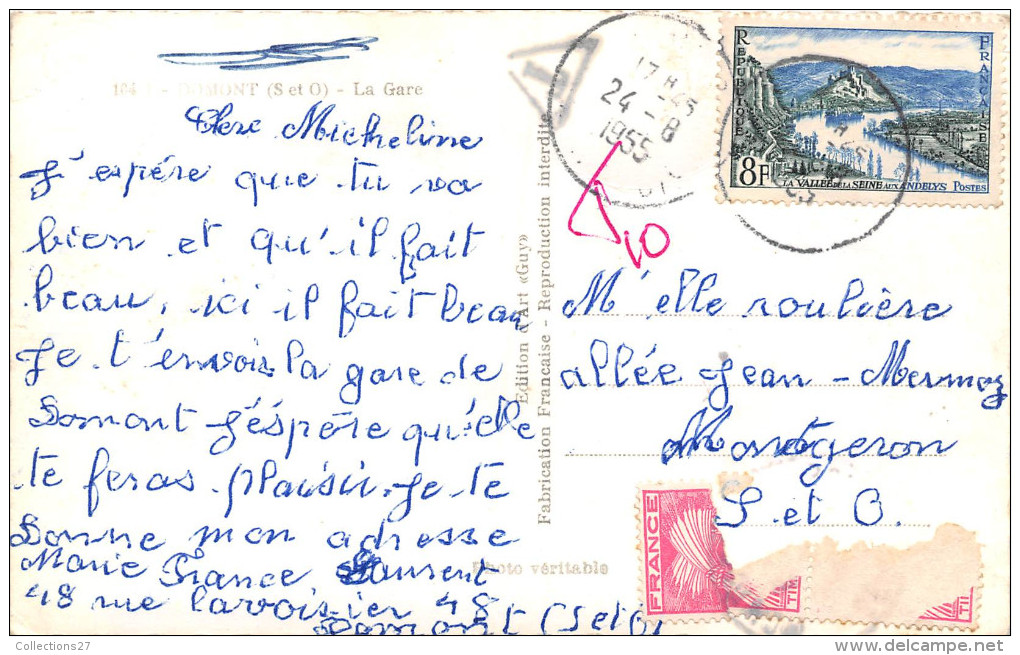 DOMONT (S et O) - La Gare
Chere Micheline
J'espére que tu va
bien et qu'il fait
beau, ici il fait beau
Je t'envois la gare de
Domont J'éspére qu'elle
te feras plaisir. Je te
Donne mon adresse
Marie France Laurent
48 rue lavoisier 48
Domont (SetO)
Edition d'Art «Guy»
Fabrication Francaise - Reproduction interdite
Photo véritable
T
17 H 45
24 - 8
1955
T 10
REPUBLIQUE FRANCAISE
8F
LA VALLEE DE LA SEINE AUX ANDELYS POSTES
M'elle roulière
allée Jean - Mermoz
Montgeron
S. et O.
FRANCE
TIM
TI
Collections27
www.delcampe.net